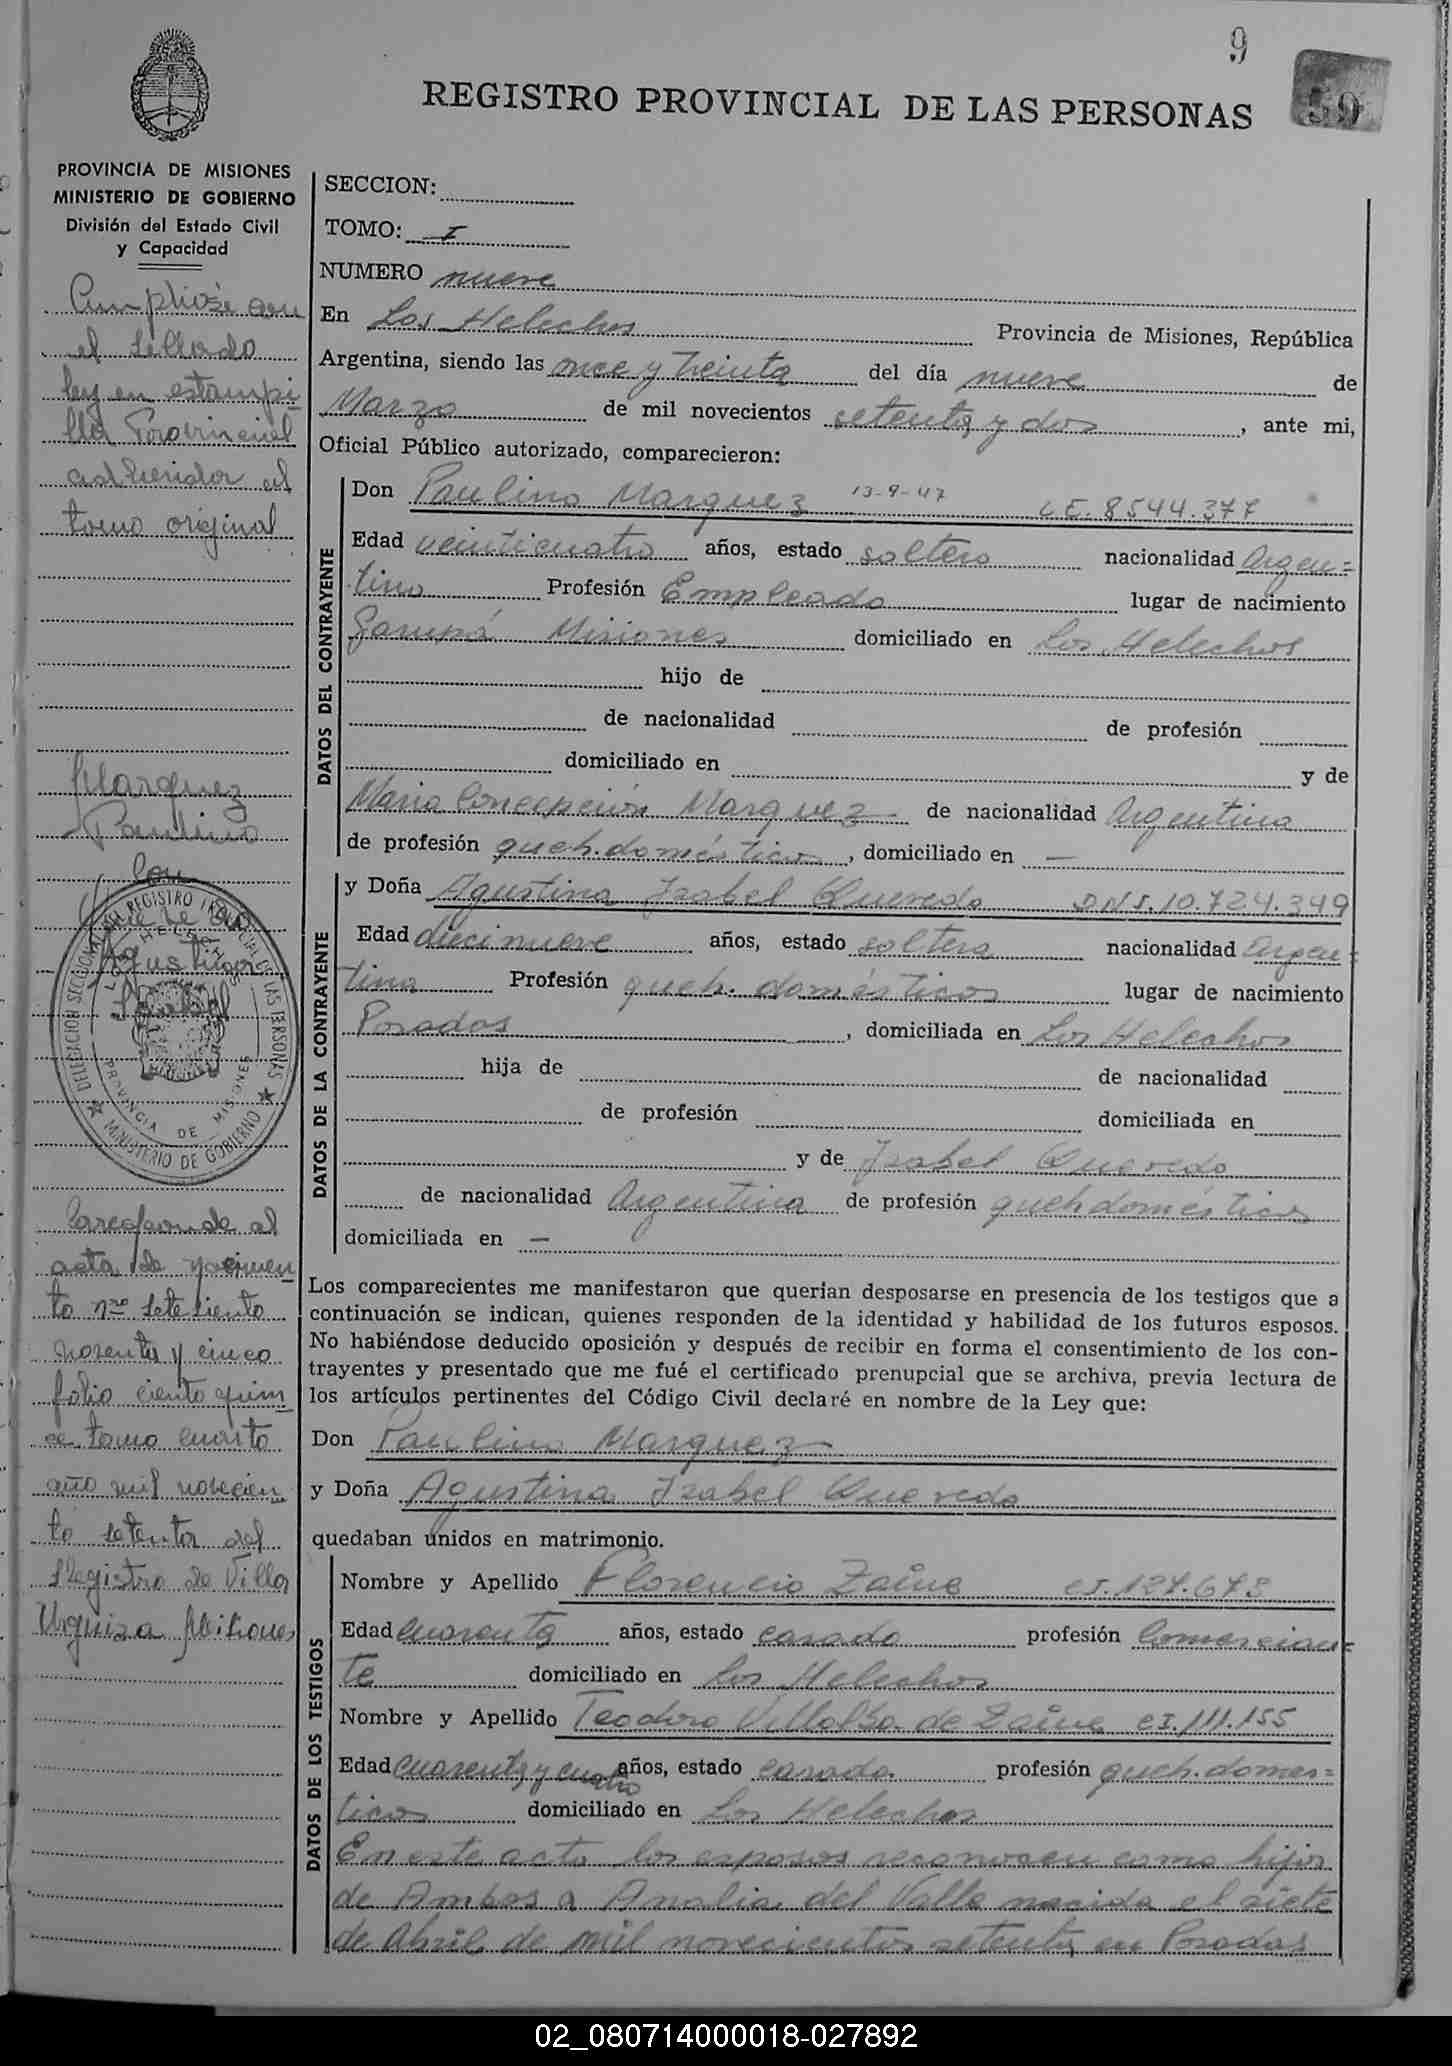 9
59
REGISTRO PROVINCIAL DE LAS PERSONAS
PROVINCIA DE MISIONES
MINISTERIO DE GOBIERNO
División del Estado Civil
y Capacidad
Cumplióse con
el sellado
ley en estampi-
lla Provincial
adheridor al
tomo original
Marquez
Paulino
con
Quevedo
Agustina
Isabel
DELEGACION SECCIONAL DEL REGISTRO PROVINCIAL DE LAS PERSONAS
LOS HELECHOS
PROVINCIA DE MISIONES
MINISTERIO DE GOBIERNO
Corresponde al
acta de nacimien
to nro sete siento
noventa y cinco
folio ciento quin-
ce tomo cuarto
año mil novecien
to setenta del
Registro de Villa
Urquiza Misiones
SECCION:
TOMO: I
NUMERO nueve
En Los Helechos Provincia de Misiones, República
Argentina, siendo las once y treinta del día nueve de
Marzo de mil novecientos setenta y dos, ante mi,
Oficial Público autorizado, comparecieron:
DATOS DEL CONTRAYENTE
Don Paulino Marquez 13-9-47 LE. 8544.377
Edad veinticuatro años, estado soltero nacionalidad Argen=
tino Profesión Empleado lugar de nacimiento
Garupá Misiones domiciliado en Los Helechos
hijo de
de nacionalidad de profesión
domiciliado en y de
Maria Concepción Marquez de nacionalidad Argentina
de profesión queh. domésticos, domiciliado en —
DATOS DE LA CONTRAYENTE
y Doña Agustina Izabel Quevedo DNI.10.724.349
Edad diecinueve años, estado soltera nacionalidad Argen=
tina Profesión queh. domésticos lugar de nacimiento
Posadas, domiciliada en Los Helechos
hija de de nacionalidad
de profesión domiciliada en
y de Izabel Quevedo
de nacionalidad Argentina de profesión queh domésticos
domiciliada en —
Los comparecientes me manifestaron que querían desposarse en presencia de los testigos que a
continuación se indican, quienes responden de la identidad y habilidad de los futuros esposos.
No habiéndose deducido oposición y después de recibir en forma el consentimiento de los con-
trayentes y presentado que me fué el certificado prenupcial que se archiva, previa lectura de
los artículos pertinentes del Código Civil declaré en nombre de la Ley que:
Don Paulino Marquez
y Doña Agustina Izabel Quevedo
quedaban unidos en matrimonio.
DATOS DE LOS TESTIGOS
Nombre y Apellido Florencio Zaine CI.127.673
Edad cuarenta años, estado casado profesión Comercian=
te domiciliado en Los Helechos
Nombre y Apellido Teodora Villalba de Zaine CI.111.155
Edad cuarenta y cuatro años, estado casada. profesión queh. domes=
ticos domiciliado en Los Helechos
En este acto los esposos reconocen como hijos
de Ambos a Analia del Valle nacida el siete
de abril de mil novecientos setenta en Posadas
02_080714000018-027892